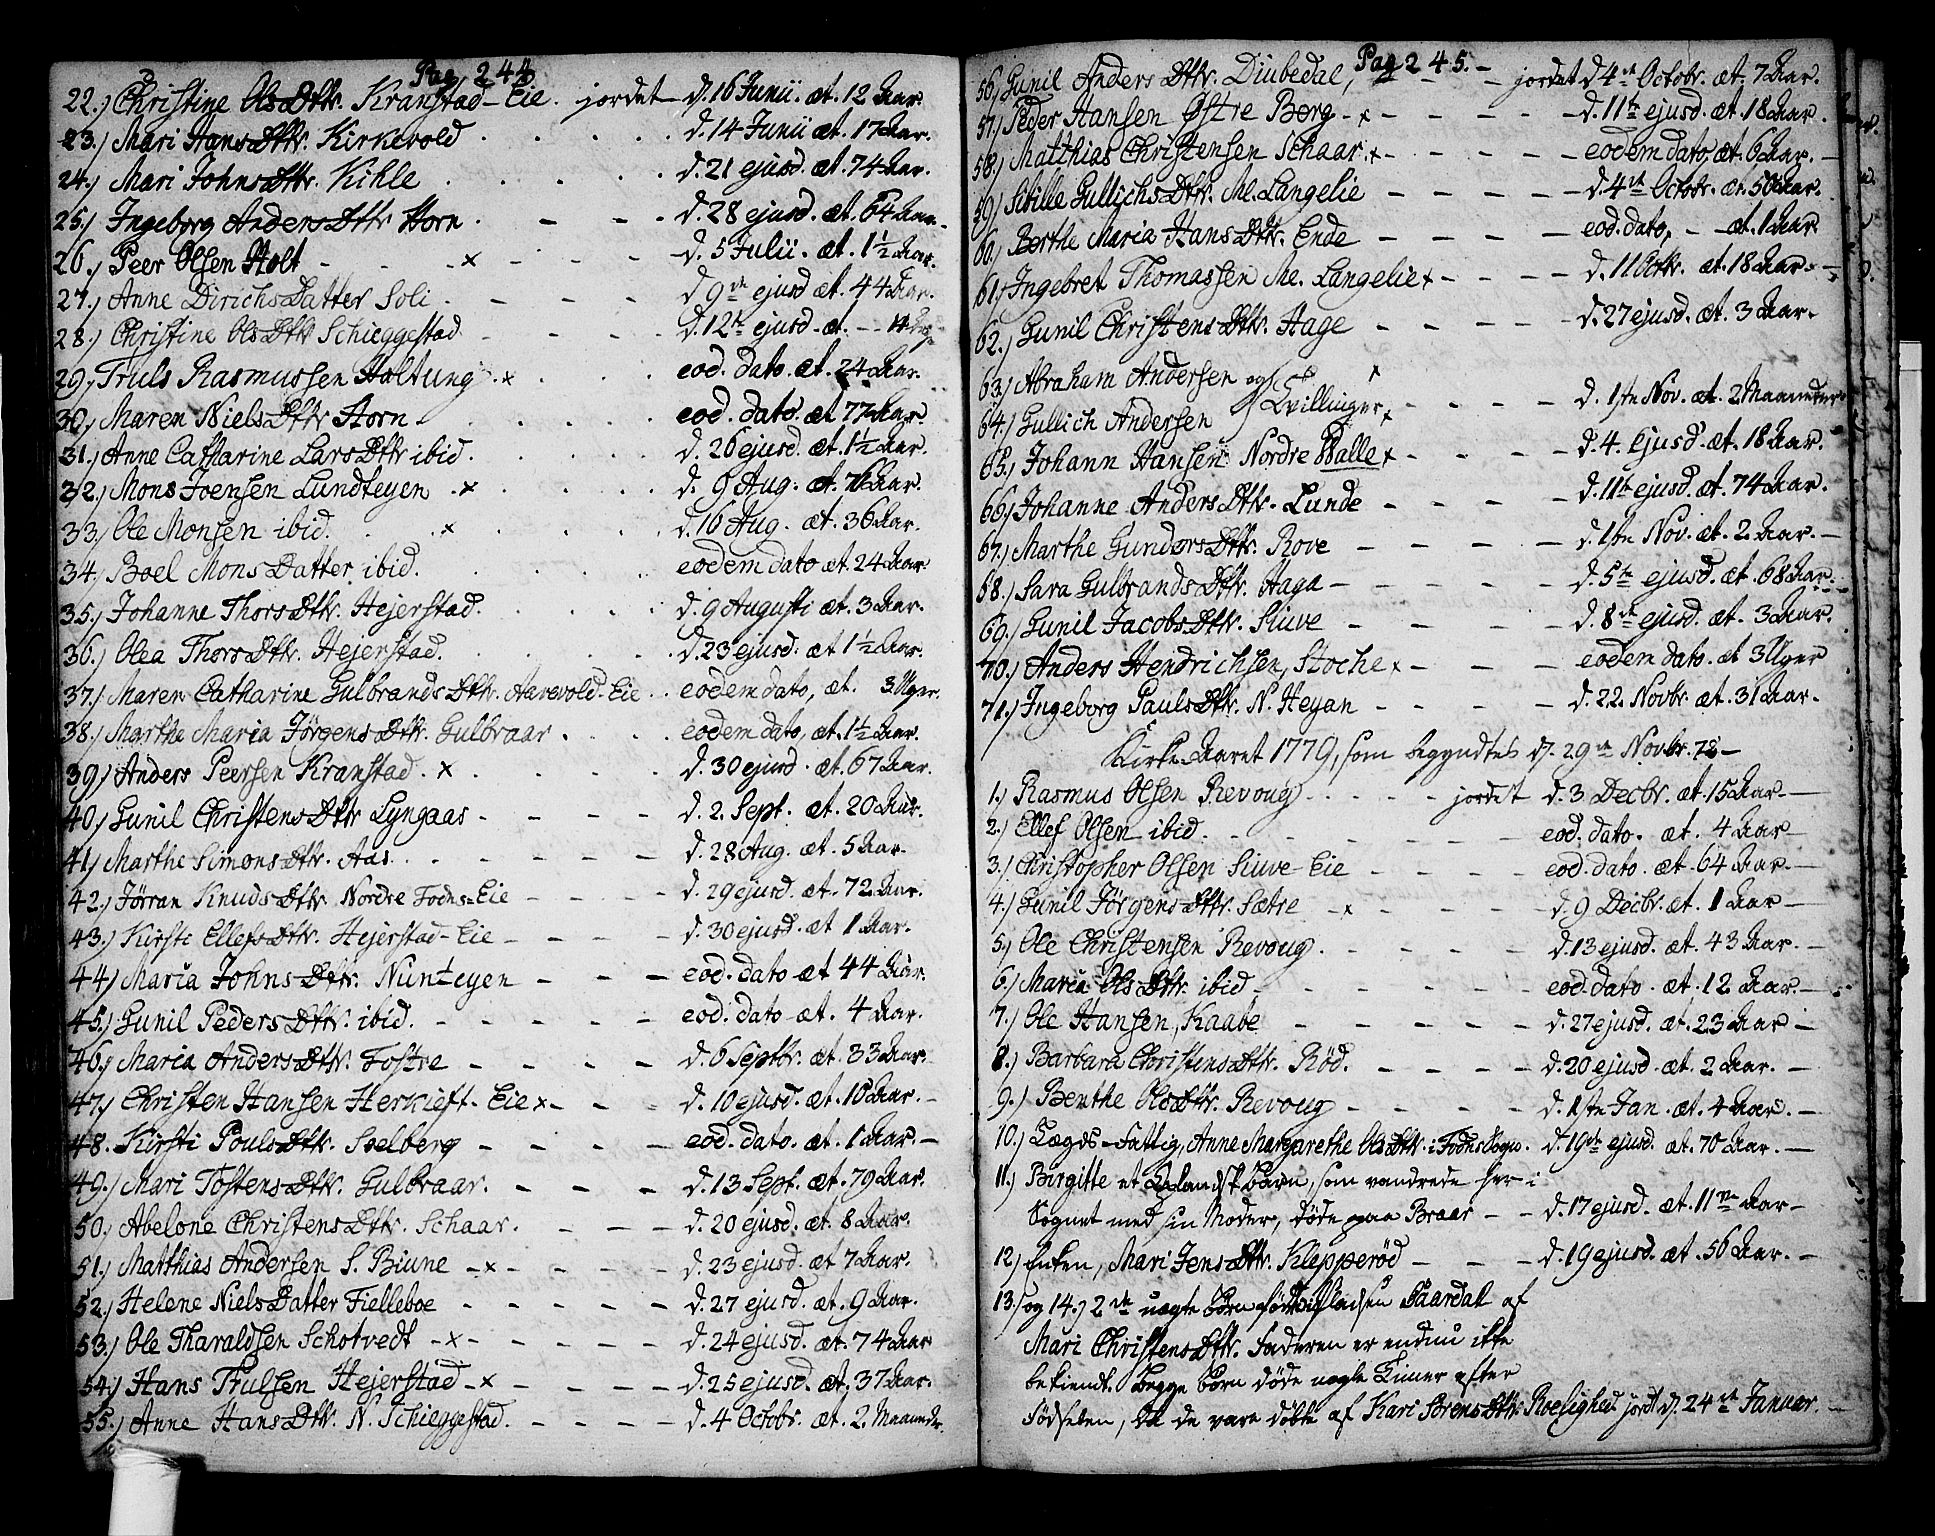 Pag. 244
22.) Christine OlsDttr. Kranstad-Eie. jordet d. 16 Junii. æt. 12 Aar.
23.) Mari HansDttr. Kirkevold . . . . d. 14 Junii æt. 17 Aar.
24.) Mari JohnsDttr. Kihle . . . . d. 21 ejusd. æt. 74 Aar.
25.) Ingeborg AndersDttr Horn . - - . d. 28 ejusd. æt. 64 Aar.
26.) Peer Olsen Holt - - x - - - d. 5 Julii. æt. 1½ Aar.
27.) Anne DirichsDatter Soli . - - - d. 9de ejusd æt. 44 Aar.
28.) Christine OlsDttr Schieggestad - - - d. 12te ejusd. æt. --
29.) Truls Rasmussen Holtung . x . . . eod. dato. æt. 24 Aar.
30.) Maren NielsDttr Horn . . . . eod. dato. æt 77 Aar.
31.) Anne Catharine LarsDttr ibid. . . . d. 26 ejusd. æt. 1½ Aar.
32.) Mons Joensen Lundteyen . x . . . d. 9 Aug. æt. 76 Aar.
33.) Ole Monsen ibid. . x . . . d. 16 Aug. æt. 36 Aar.
34.) Boel MonsDatter ibid. . . . . eodem dato æt. 24 Aar.
35.) Johanne ThorsDttr. Hejerstad. . . . d. 9 Augusti æt. 3 Aar.
36.) Olea ThorsDttr. Hejerstad. . . . d. 23 ejusd. æt 1½ Aar.
37.) Maren Catharine GulbrandsDttr. Aarevold-Eie . . eodem dato, æt. 3 Uger.
38.) Marthe Maria JørgensDttr. Gulbraar . . . eodem dato, æt. 1½ Aar.
39.) Anders Peersen Kranstad . x . . . d. 30 ejusd. æt. 67 Aar.
40.) Gunil ChristensDttr Lyngaas - - - - d. 2. Sept. æt. 20 Aar.
41.) Marthe SimonsDttr. Aas . . - - - d. 28 Aug. æt. 5 Aar.
42.) Jørran KnudsDttr. Nordre Fodns-Eie - - - - d. 29 ejusd. æt. 72 Aar.
43.) Kirsti EllefsDttr. Hejerstad-Eie - - - - d. 30 ejusd. æt 1 Aar.
44.) Maria JohnsDttr. Nunteyen - - - eod. dato æt 44 Aar.
45.) Gunil PedersDttr. ibid. - - - - - eod. dato æt. 4 Aar.
46.) Maria AndersDttr. Fostre - - - - d. 6 Septbr. æt. 33 Aar.
47.) Christen Hansen Herkieft-Eie x - - - d. 10 ejusd. æt. 10 Aar. -
48. Kirsti PoulsDttr. Sselberg - - - - eod. dato. æt. 1 Aar. -
49.) Mari TostensDttr. Gulbraar. - - - d. 13 Sept. æt. 79 Aar.
50.) Abelone ChristensDttr. Schaar. - - - d. 20 ejusd. æt. 8 Aar.
51.) Matthias Andersen S. Biune - x - - - - d. 23 ejusd. æt. 7 Aar.
52.) Helene NielsDatter Fielleboe - - - - - d. 27 ejusd. æt. 9 Aar.
53.) Ole Tharaldsen Schotvedt - x - - - - d. 24 ejusd. æt. 74 Aar
54.) Hans Trulsen Hejerstad - x - - - - d. 25 ejusd. æt. 37 Aar.
55.) Anne HansDttr. N. Schieggestad. - - - d. 4 Octobr. æt. 2. Maaneder.
Pag 245. -
56.) Gunil AndersDttr. Diubedal, - - - jordet d. 4de Octobr. æt. 7 Aar.
57.) Peder Hansen Østre Berg - x - - - - d. 11te ejusd. æt. 18 Aar.
58.) Matthias Christensen Schaar. x - - - - eodem dato, æt. 6 Aar. -
59.) Sibille GullichsDttr. Me. Langelie - - - - d. 4de Octobr. æt. 50 Aar.
60.) Berthe Maria HansDttr. Ende - - - - eod. dato, - - æt. 1 Aar
61.) Ingebret Thomassen Me. Langelie x - - - d. 11 Octbr. æt. 18 Aar. -
62.) Gunil ChristensDttr. Hage - - - - d. 27 ejusd. æt. 3 Aar.
63.) Abraham Andersen og x
64.) Gullich Andersen Tvillinger x - - - - d. 1ste Nov. æt. 2 Maaneder
65.) Johann Hansen Nordre Walle x - - - - d. 4. Ejusd. æt. 18 Aar.
66.) Johanne AndersDttr. Lunde - - - - d. 11te ejusd. æt. 74 Aar.
67.) Marthe GundersDttr. Rove - - - - - d. 1ste Nov. æt. 2. Aar. -
68.) Sara GulbrandsDttr. Haga - - - - - d. 5te ejusd. æt. 68 Aar.
69.) Gunil JacobsDttr. Siuve - - - - - d. 8de ejusd. æt. 3 Aar.
70.) Anders Hendrichsen, Stoche x - - - eodem dato. æt 3 Uger
71.) Ingeborg PaulsDttr. N. Heyan - - - - d. 22. Novbr. æt. 31 Aar.
Kirke-Aaret 1779, som begyndtes d. 29de Novbr. 78 -
1.) Rasmus Olsen Revoug . . . . jordet d. 3 Decbr. æt. 15 Aar. -
2.) Ellef Olsen ibid. - - - - - eod. dato. æt. 4 Aar -
3.) Christopher Olsen Siuve-Eie - - - - eod. dato. æt. 64 Aar. -
4.) Gunil JørgensDttr. Sætre - x - - - - d. 9 Decbr. æt. 1 Aar -
5.) Ole Christensen Revoug. - - - - d. 13 ejusd. æt. 43 Aar. -
6.) Maria OlsDttr. ibid. - - - - - eod. dato. æt. 12 Aar. -
7.) Ole Hansen, Kaabe - - - - - d. 27 ejusd. æt. 23 Aar -
8.) Barbara ChristensDttr. Rød. - - - - d. 20 ejusd. æt. 2 Aar. -
9.) Benthe OlsDttr. Revoug - - - - - d. 1ste Jan. æt. 4 Aar. -
10.) Lægds-Fattig, Anne Margarethe OlsDttr. i Fodns Sogn. d. 19de ejusd. æt. 70 Aar. -
11.) Birgitte et barn, som vandrede her i
Sognet med sin Moder, døde paa Braar - - d. 17 ejusd. æt. 11 Aar -
12.) Enken, Mari JensDttr. Klepperød - - - d. 19 ejusd. æt. 56 Aar. -
13.) og 14.) 2de uægte børn fødte i Pladsen Saardal af
Mari ChristensDttr. Faderen er endnu ikke
bekiendt. Begge børn døde nogle Timer efter
Fødselen, da de vare døbte af Kari SørensDttr. Roelighed jordt d. 24de Januar. -